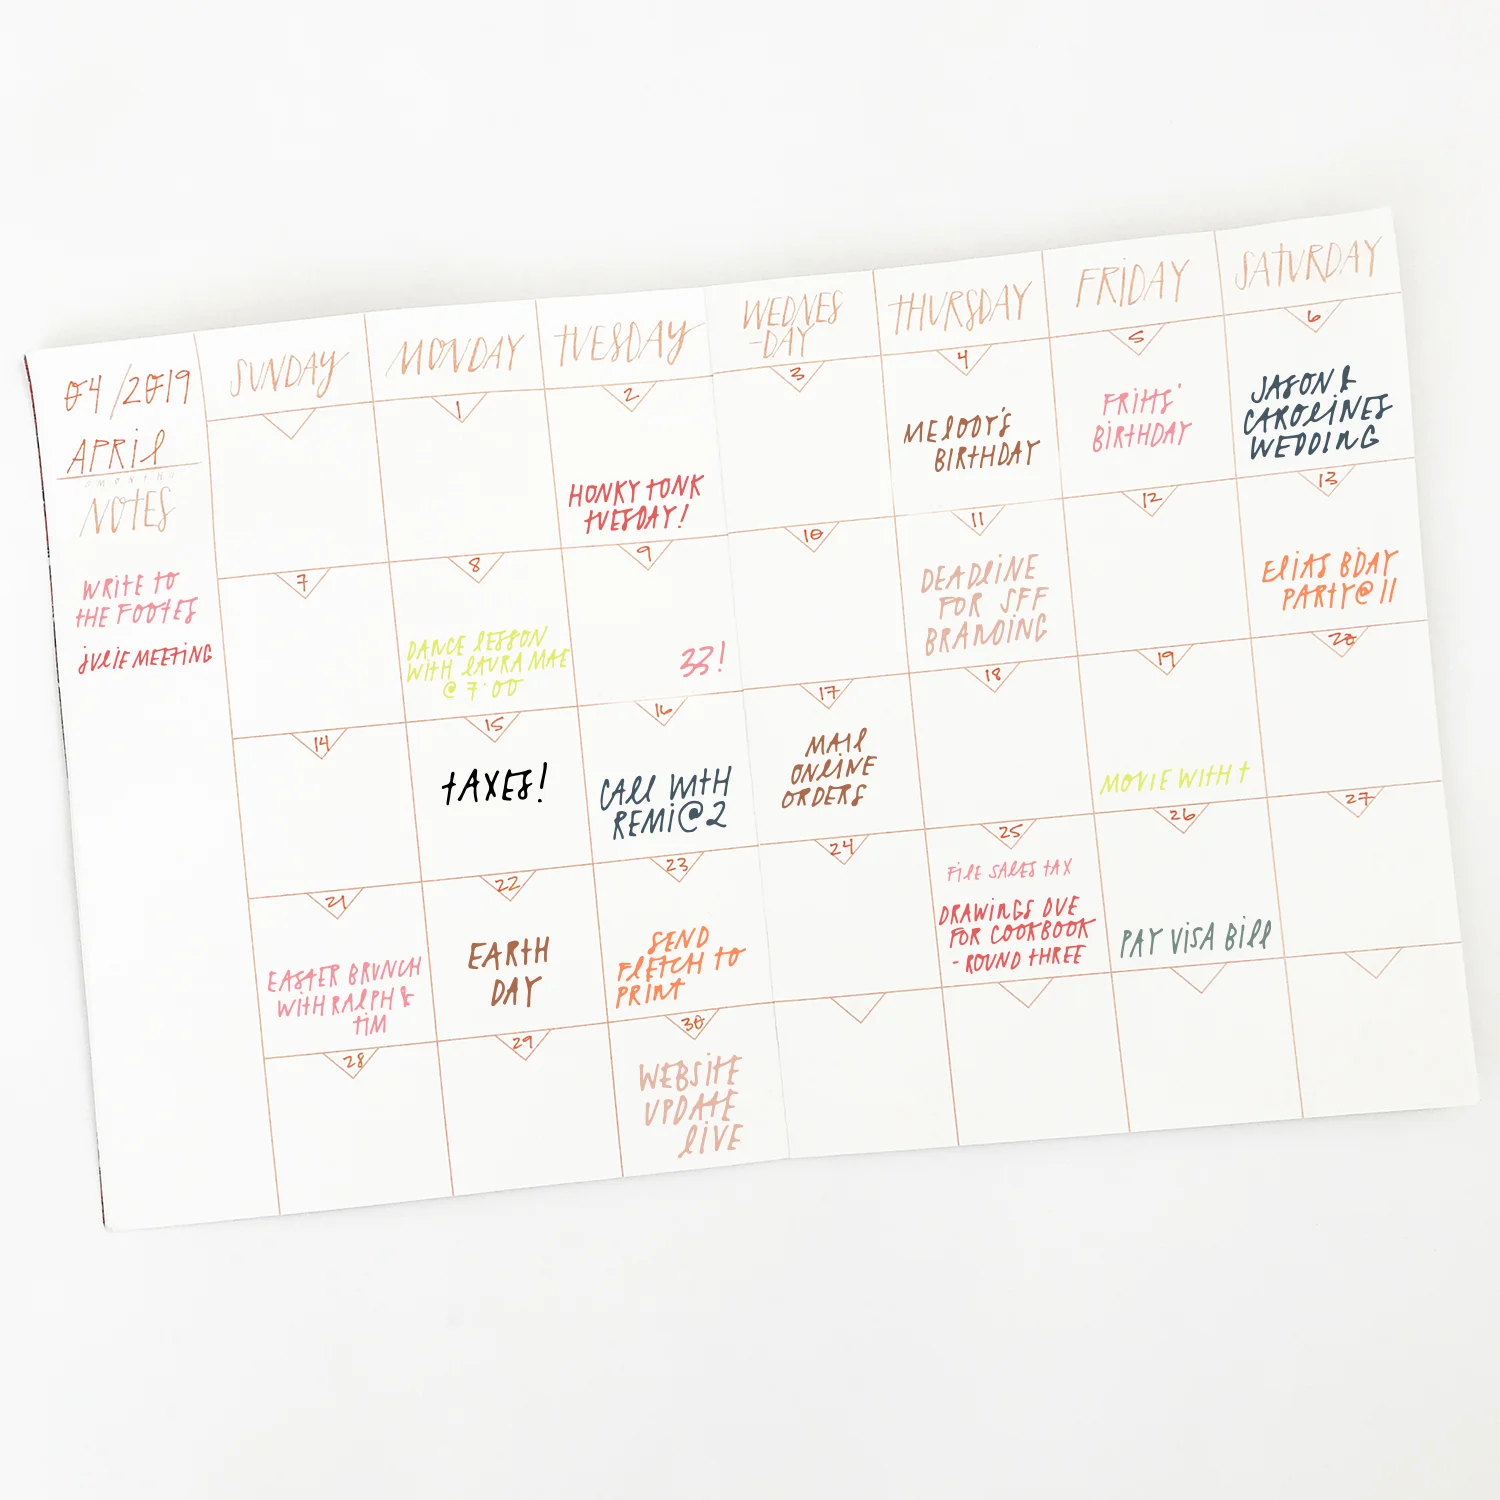 04/2019
APRIL
MONTH
NOTES
WRITE TO
THE FOOTES
JULIE MEETING
SUNDAY
MONDAY
TUESDAY
WEDNES
-DAY
THURSDAY
FRIDAY
SATURDAY
1
2
HONKY TONK
TUESDAY!
3
4
MELODY'S
BIRTHDAY
5
FRITTS'
BIRTHDAY
6
JASON &
CAROLINES
WEDDING
7
8
DANCE LESSON
WITH LAURA MAE
@ 7:00
9
33!
10
11
DEADLINE
FOR SFF
BRANDING
12
13
ELIAS BDAY
PARTY @ 11
14
15
TAXES!
16
CALL WITH
REMI @ 2
17
MAIL
ONLINE
ORDERS
18
19
MOVIE WITH T
20
21
EASTER BRUNCH
WITH RALPH &
TIM
22
EARTH
DAY
23
SEND
FLETCH TO
PRINT
24
25
FILE SALES TAX
DRAWINGS DUE
FOR COOKBOOK
- ROUND THREE
26
PAY VISA BILL
27
28
29
30
WEBSITE
UPDATE
LIVE